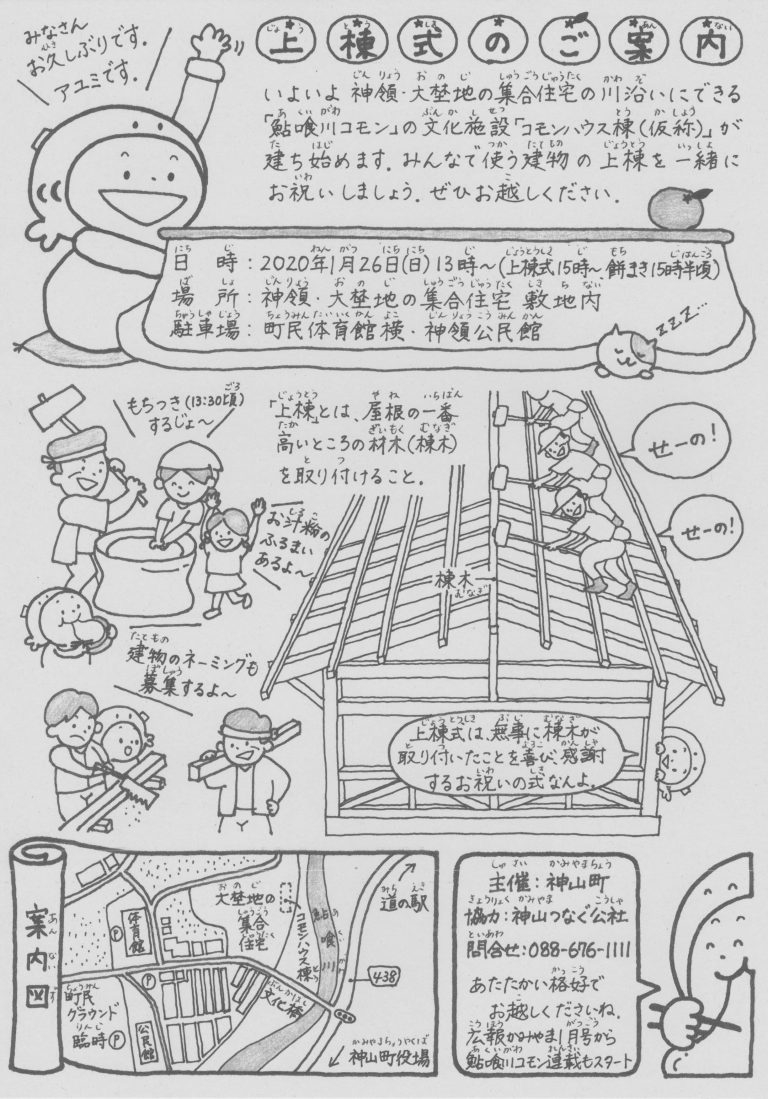 みなさん
お久しぶりです.
アユミです.
上棟式のご案内
いよいよ 神領・大埜地の集合住宅の川沿いにできる
「鮎喰川コモン」の文化施設「コモンハウス棟(仮称)」が
建ち始めます. みんなで使う建物の上棟を一緒に
お祝いしましょう. ぜひお越しください.
日 時:2020年1月26日(日)13時~(上棟式15時~、餅まき15時半頃)
場 所:神領・大埜地の集合住宅 敷地内
駐車場:町民体育館横・神領公民館
ZZZ...
もちつき(13:30頃)
するじょ~
「上棟」とは、屋根の一番
高いところの材木(棟木)
を取り付けること.
せーの!
せーの!
お汁粉の
ふるまい
あるよ~
棟木
建物のネーミングも
募集するよ~
上棟式は、無事に棟木が
取り付いたことを喜び、感謝
するお祝いの式なんよ.
案内図
体育館
P
大埜地の
集合
住宅
コモンハウス棟
鮎喰川
道の駅
438
町民
グラウンド
臨時P
P
公民館
文化橋
神山町役場
主催:神山町
協力:神山つなぐ公社
問合せ:088-676-1111
あたたかい格好で
お越しくださいね.
広報かみやま1月号から
鮎喰川コモン連載もスタート